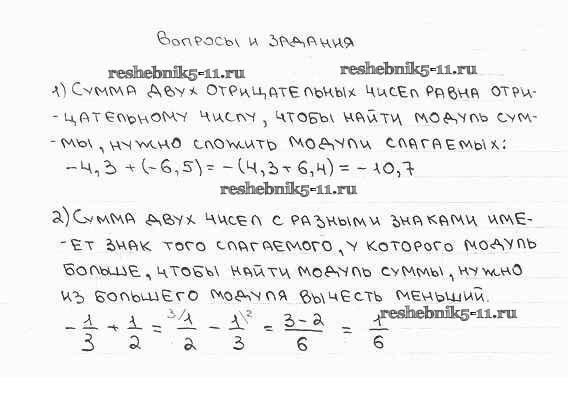 Вопросы и задания
reshebnik5-11.ru
reshebnik5-11.ru
1) Сумма двух отрицательных чисел равна отри-
-цательному числу, чтобы найти модуль сум-
-мы, нужно сложить модули слагаемых:
-4,3 + (-6,5) = -(4,3 + 6,4) = -10,7
reshebnik5-11.ru
2) Сумма двух чисел с разными знаками име-
-ет знак того слагаемого, у которого модуль
больше, чтобы найти модуль суммы, нужно
из большего модуля вычесть меньший.
reshebnik5-11.ru
-1/3 + 1/2 = 3/1/2 - 1\2/3 = 3-2/6 = 1/6